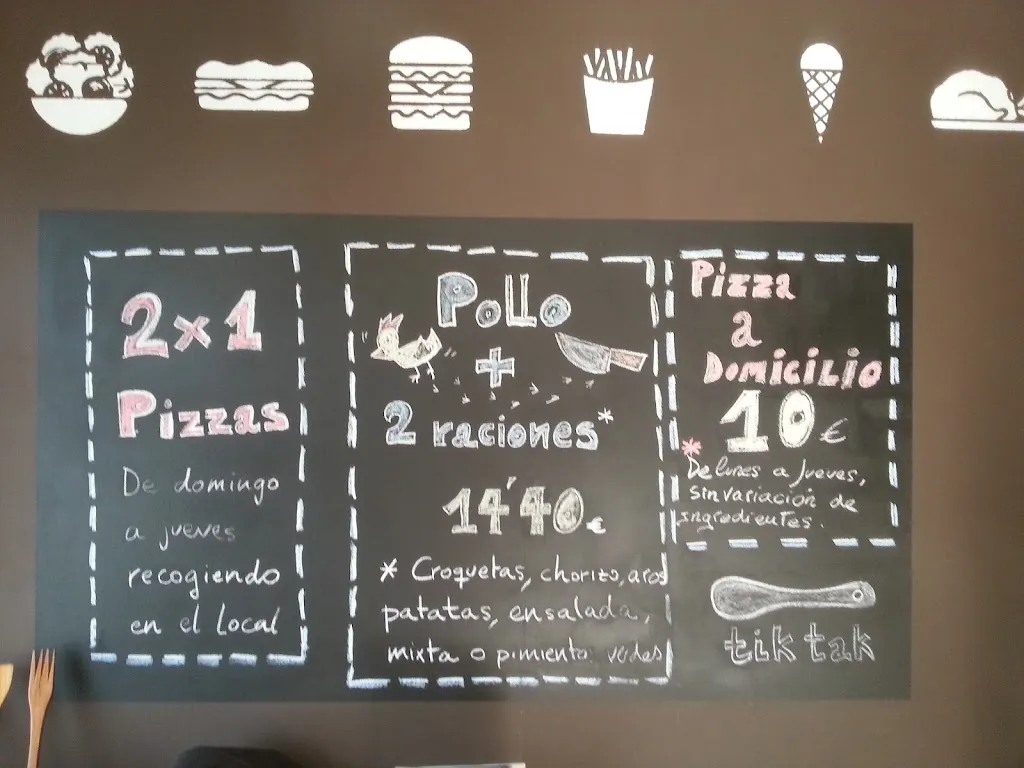 2x1
Pizzas
De domingo
a jueves
recogiendo
en el local
Pollo
+
2 raciones*
14'40€
* Croquetas, chorizo, aros
patatas, ensalada,
mixta o pimiento verdes
Pizza
a
Domicilio
10€
* De lunes a jueves,
sin variación de
ingredientes.
tik tak